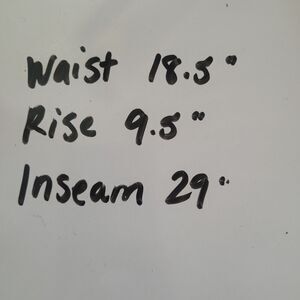 Waist 18.5"
Rise 9.5"
Inseam 29"